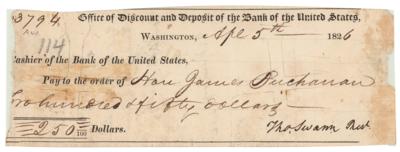 3794 Office of Discount and Deposit of the Bank of the United States,
114 WASHINGTON, Apl 5th 1826
Cashier of the Bank of the United States,
Pay to the order of Hon James Buchanan
two hundred & fifty Dollars
250 00/100 Dollars. Tho Swann Prest